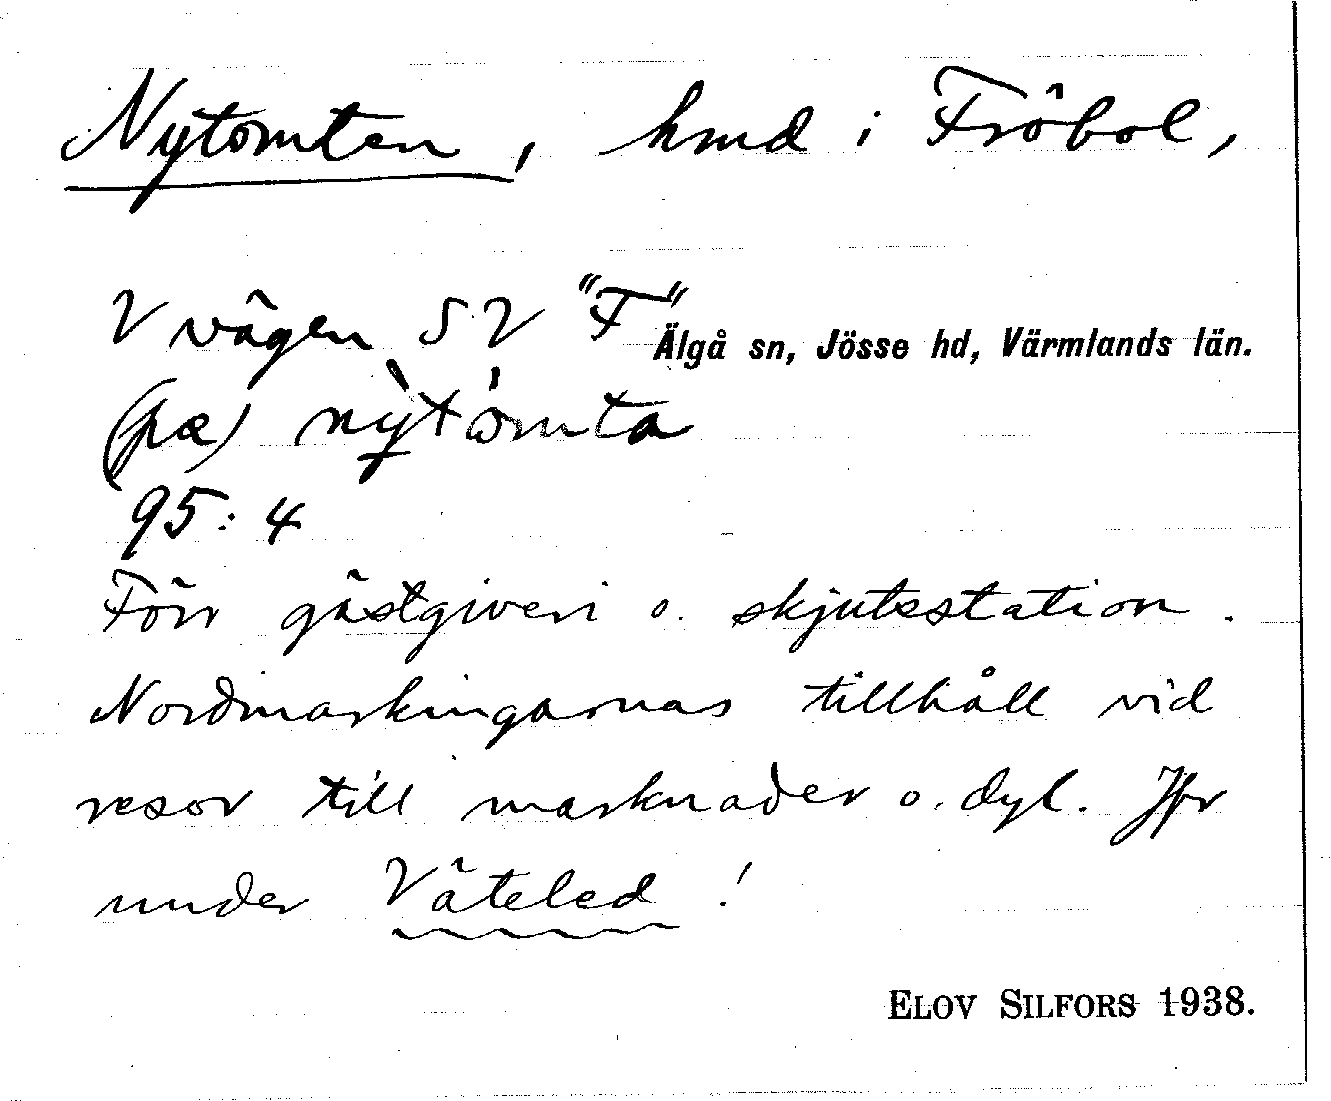 Nytomten, hmd i Fröbol,
V vägen SV "F"
Älgå sn, Jösse hd, Värmlands län.
(pæ) nỳtómta
95:4
Förr gästgiveri o. skjutsstation.
Nordmarkingarnas tillhåll vid
resor till marknader o. dyl. Jfr
under Väteled!
ELOV SILFORS 1938.